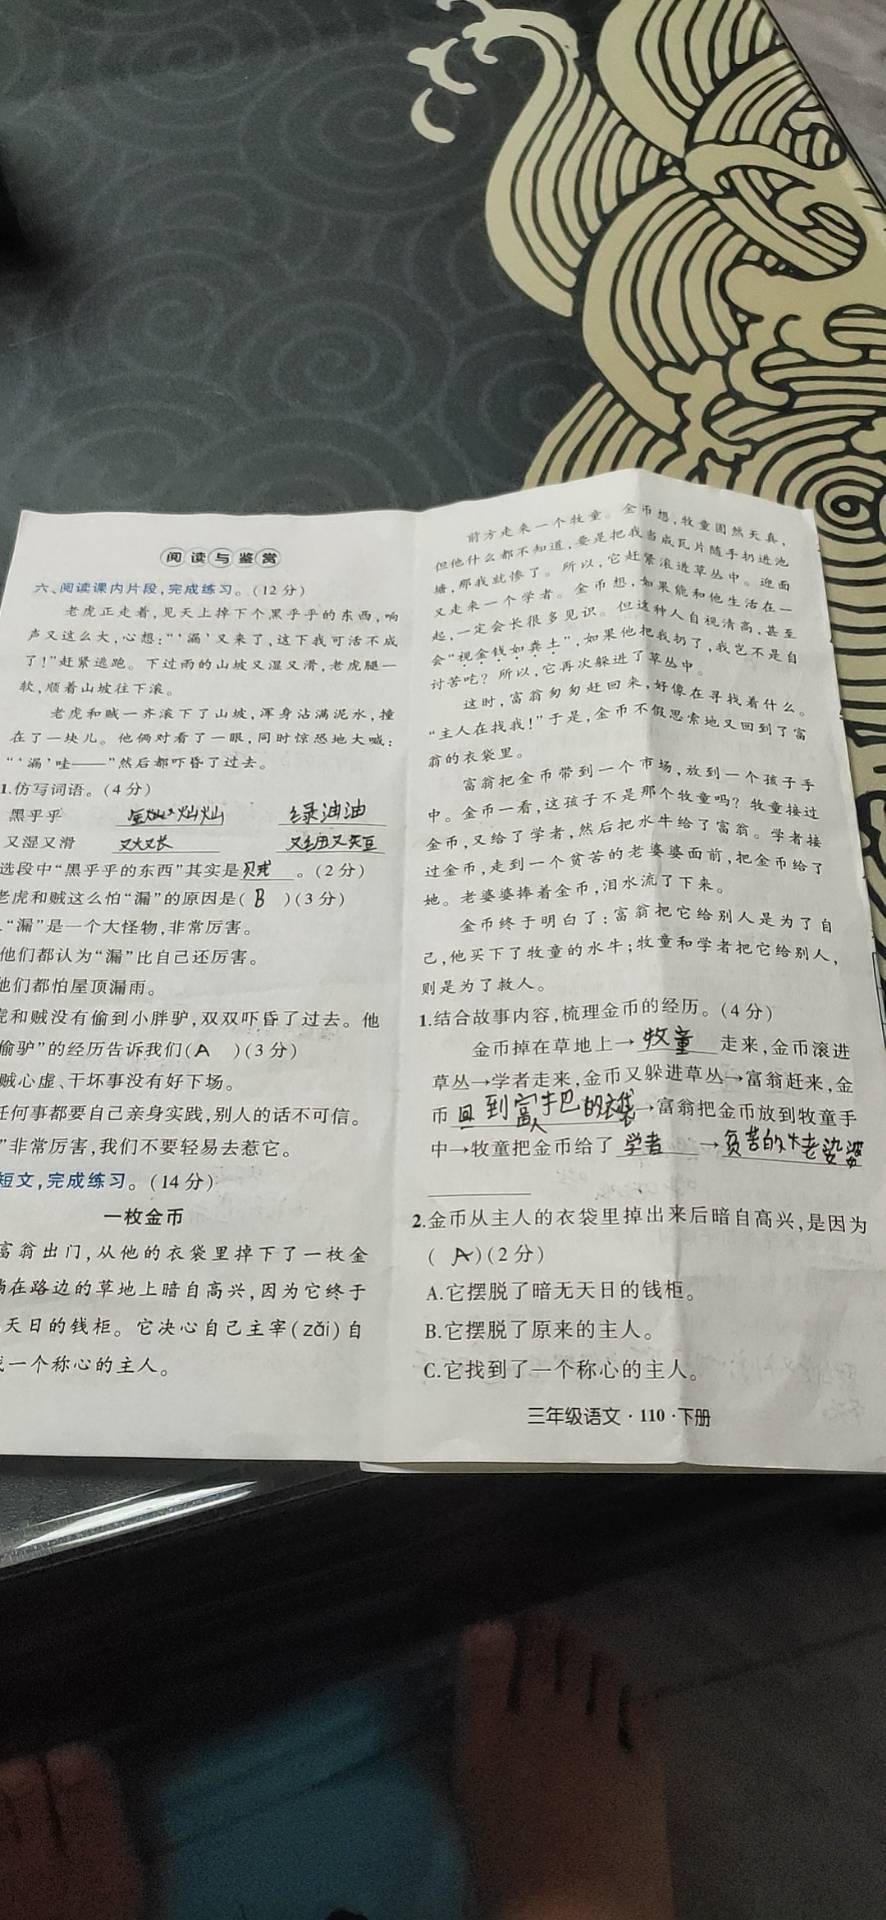 阅读与鉴赏
六、阅读课内片段,完成练习。(12分)
老虎正走着,见天上掉下个黑乎乎的东西,响
声又这么大,心想:“‘漏’又来了,这下我可活不成
了!”赶紧逃跑。下过雨的山坡又湿又滑,老虎腿一
软,顺着山坡往下滚。
老虎和贼一齐滚下了山坡,浑身沾满泥水,撞
在了一块儿。他俩对看了一眼,同时惊恐地大喊:
“‘漏’哇——”然后都吓昏了过去。
1.仿写词语。(4分)
黑乎乎 金灿灿 绿油油
又湿又滑 又大又长 又细又短
选段中“黑乎乎的东西”其实是 贼 。(2分)
老虎和贼这么怕“漏”的原因是( B )(3分)
.“漏”是一个大怪物,非常厉害。
他们都认为“漏”比自己还厉害。
他们都怕屋顶漏雨。
虎和贼没有偷到小胖驴,双双吓昏了过去。他
偷驴”的经历告诉我们( A )(3分)
贼心虚、干坏事没有好下场。
任何事都要自己亲身实践,别人的话不可信。
”非常厉害,我们不要轻易去惹它。
短文,完成练习。(14分)
一枚金币
富翁出门,从他的衣袋里掉下了一枚金
躺在路边的草地上暗自高兴,因为它终于
天日的钱柜。它决心自己主宰(zǎi)自
找一个称心的主人。
前方走来一个牧童。金币想,牧童固然天真,
但他什么都不知道,要是把我当成瓦片随手扔进池
塘,那我就惨了。所以,它赶紧滚进草丛中。迎面
又走来一个学者。金币想,如果能和他生活在一
起,一定会长很多见识。但这种人自视清高,甚至
会“视金钱如粪土”,如果他把我扔了,我岂不是自
讨苦吃?所以,它再次躲进了草丛中。
这时,富翁匆匆赶回来,好像在寻找着什么。
“主人在找我!”于是,金币不假思索地又回到了富
翁的衣袋里。
富翁把金币带到一个市场,放到一个孩子手
中。金币一看,这孩子不是那个牧童吗?牧童接过
金币,又给了学者,然后把水牛给了富翁。学者接
过金币,走到一个贫苦的老婆婆面前,把金币给了
她。老婆婆捧着金币,泪水流了下来。
金币终于明白了:富翁把它给别人是为了自
己,他买下了牧童的水牛;牧童和学者把它给别人,
则是为了救人。
1.结合故事内容,梳理金币的经历。(4分)
金币掉在草地上→ 牧童 走来,金币滚进
草丛→学者走来,金币又躲进草丛→富翁赶来,金
币 回到富人的衣袋→富翁把金币放到牧童手
中→牧童把金币给了 学者 → 贫苦的老婆婆
2.金币从主人的衣袋里掉出来后暗自高兴,是因为
( A )(2分)
A.它摆脱了暗无天日的钱柜。
B.它摆脱了原来的主人。
C.它找到了一个称心的主人。
三年级语文·110·下册